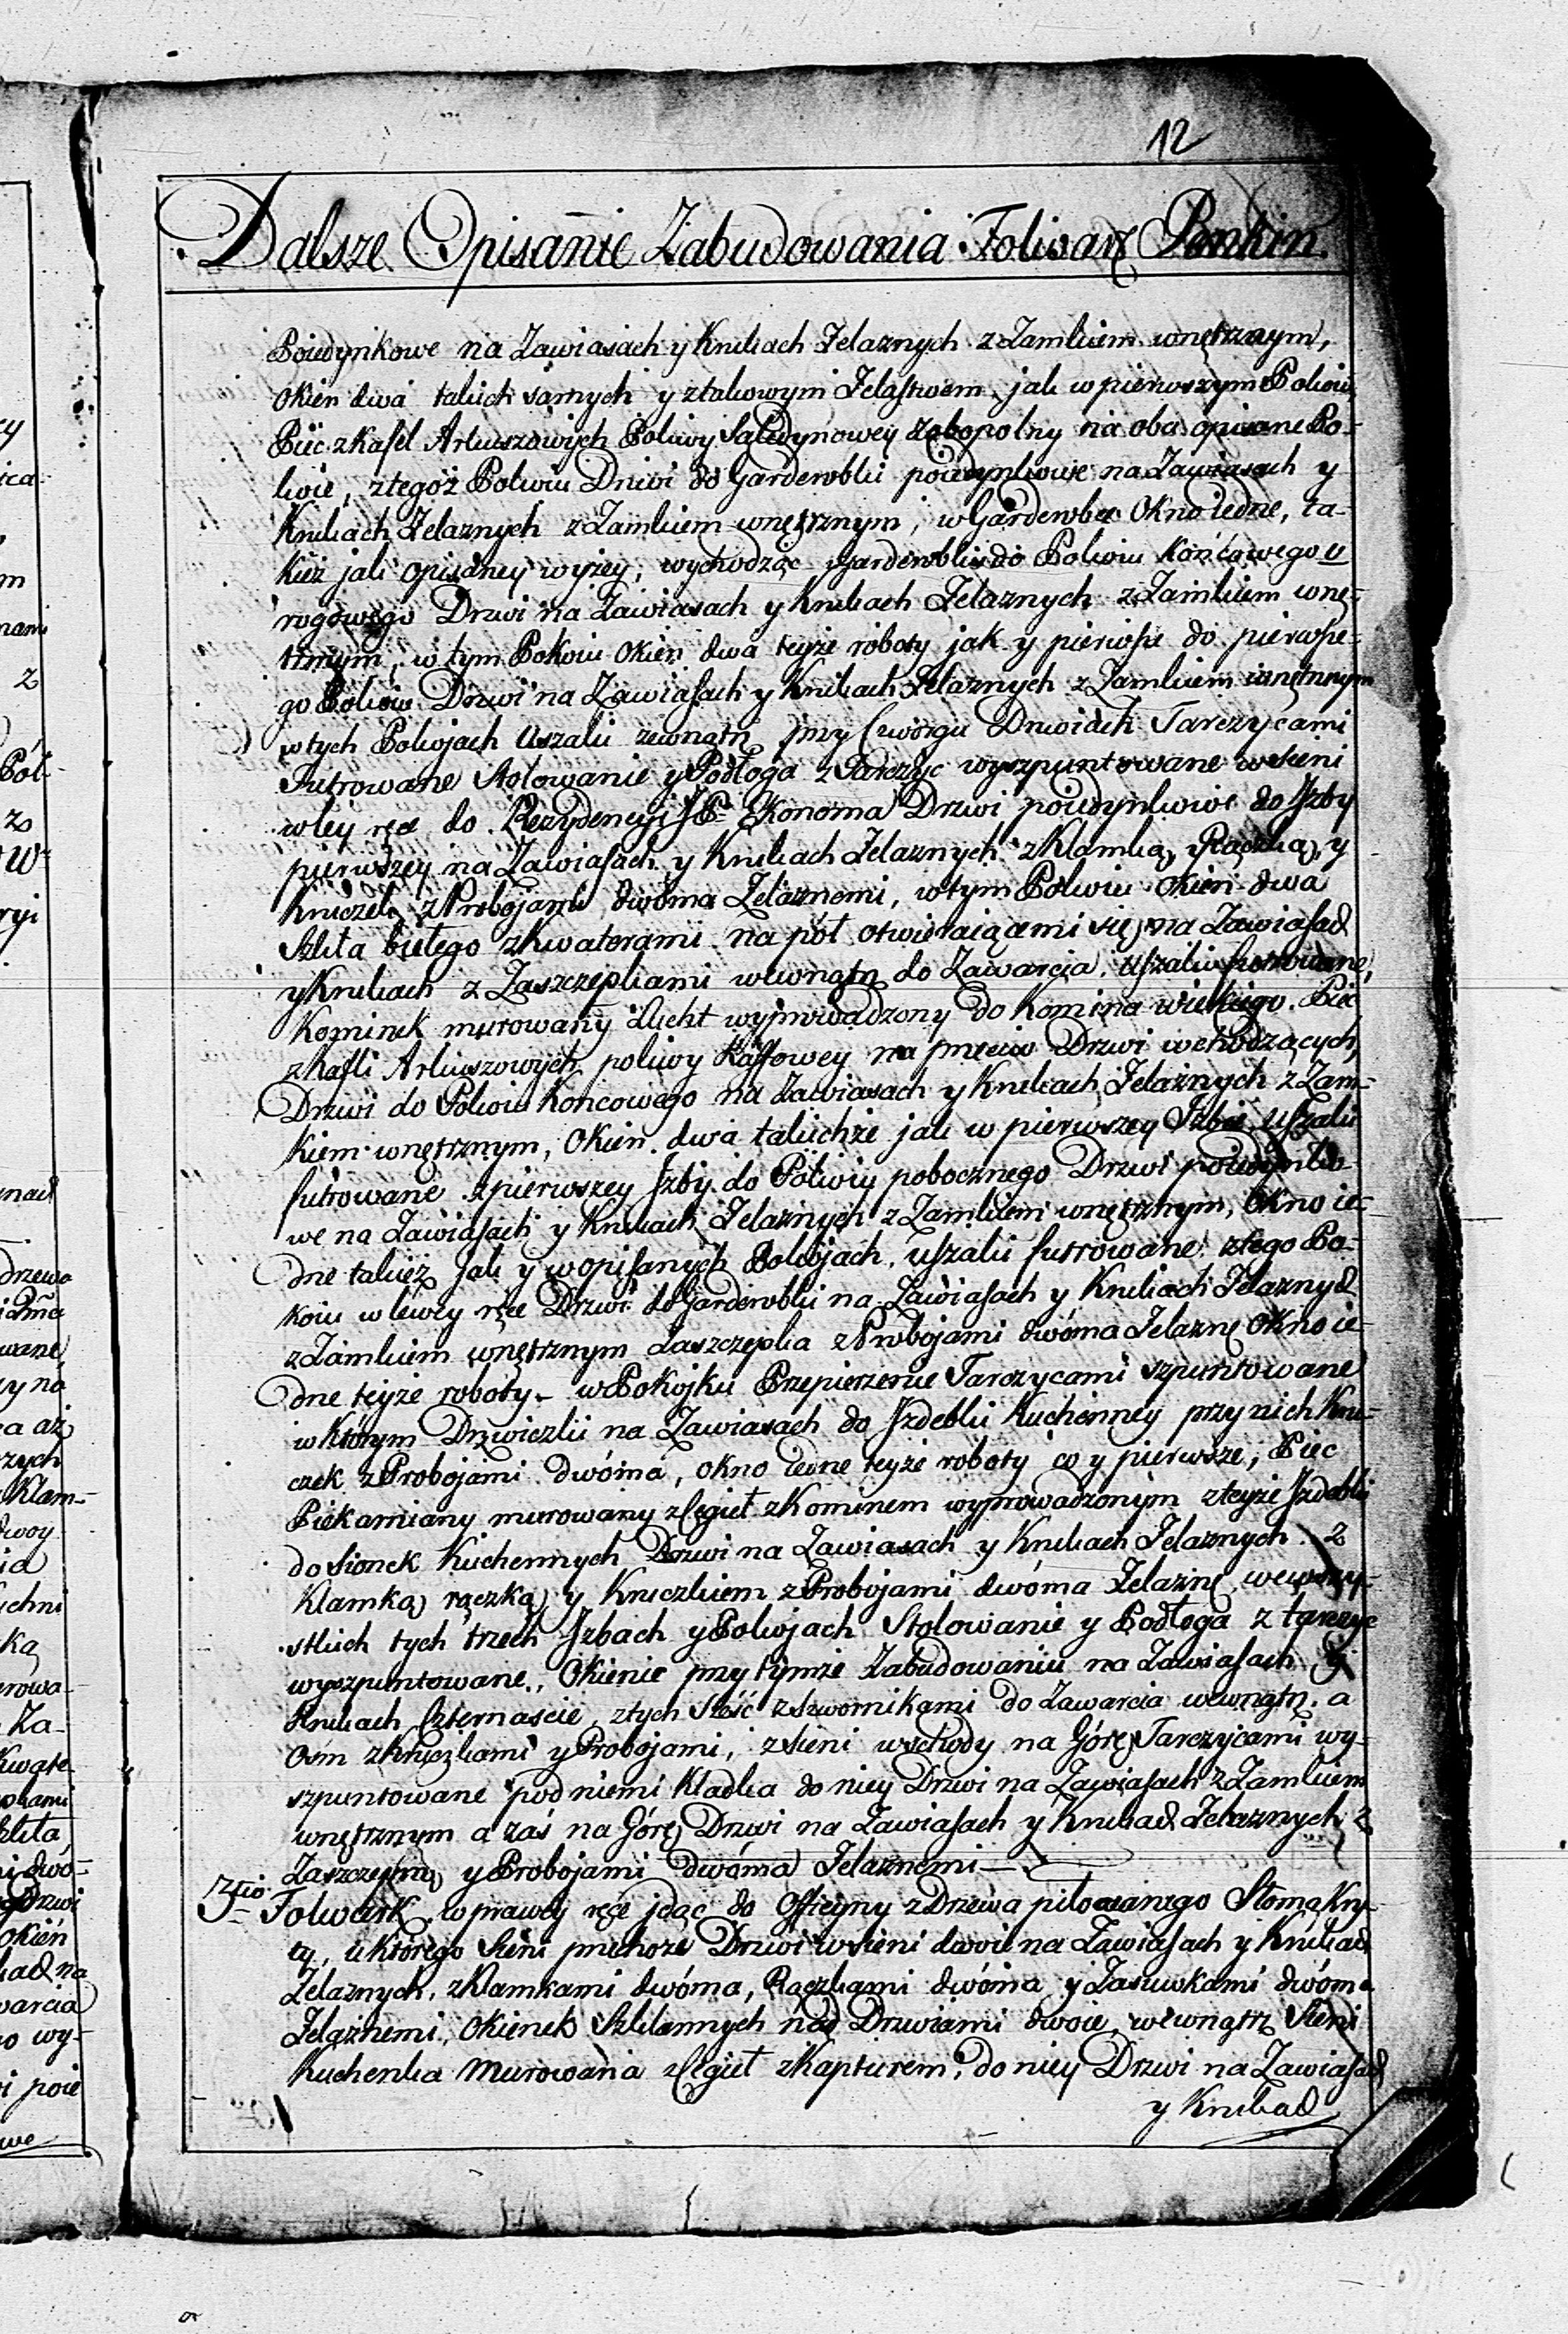 12
Dalsze Opisanie Zabudowania Folwark Penkin.
Poiedynkowe na Zawiasach y Krukach Zelaznych z Zamkiem wnętrznym,
Okien dwa takich samych y z takowym Zelastwem, jak w pierwszym Pokoiu
Piec z Kafel Arkuszowych Polewy Saledynowey zobopolny na oba opisane Po-
koie, z tegoż Pokoiu Drzwi do Garderobki poiedynkowe na Zawiasach y
Krukach Zelaznych z Zamkiem wnętrznym, w Garderobce Okno iedne, ta-
kież jak opisaney wyżey, wychodząc z Garderobki do Pokoiu Końcowego
rogowego Drzwi na Zawiasach y Krukach Zelaznych z Zamkiem wnę-
trznym, w tym Pokoiu Okien dwa teyże roboty jak y pierwsze do pierwsze-
go Pokoiu Drzwi na Zawiasach y Krukach Zelaznych z Zamkiem wnętrznym
w tych Pokojach Uszaki zewnątrz przy Czworgu Drzwiach Tarczycami
Futrowane Stolowanie y Podłoga z Tarczyc wyszpuntowane w Sieni
w ley ręce do Rezydencyi JP. Ekonoma Drzwi poiedynkowe do Jzby
pierwszey na Zawiasach y Krukach Zelaznych z Klamką, Rączką, y
Kruczek z Probojami dwoma Zelaznemi, w tym Pokoiu Okien dwa
Szkła białego z Kwaterami na pół otwieraiącemi się na Zawiasach
y Krukach z Zaszczepkami wewnątrz do Zawarcia, Uszaki futrowane,
Kominek murowany Lucht wyprowadzony do Komina wielkiego. Piec
z Kafli Arkuszowych polewy Kaffowey na przeciw Drzwi wchodzących,
Drzwi do Pokoiu Końcowego na Zawiasach y Krukach Zelaznych z Zam-
kiem wnętrznym, Okien dwa takichże jak w pierwszey Jzbie, Uszaki
futrowane z pierwszey Jzby do Pokoiu pobocznego Drzwi poiedynko-
we na Zawiasach y Krukach Zelaznych z Zamkiem wnętrznym, Okno ie-
dne takież jak y w opisanych Pokojach, Uszaki futrowane z tego Po-
koiu w lewey ręce Drzwi do Garderobki na Zawiasach y Krukach Zelaznych
z Zamkiem wnętrznym Zaszczepka z Probojami dwoma Zelazne Okno ie-
dne teyże roboty – w Pokojku Przepierzenie Tarczycami szpuntowane
w którym Drzwiczki na Zawiasach do Jzdebki Kuchenney przy nich Kru-
czek z Probojami dwoma, okno iedne teyże roboty co y pierwsze, Piec
Piekarniany murowany z Cegieł z Kominem wyprowadzonym z teyże Jzdebki
do Sionek Kuchennych Drzwi na Zawiasach y Krukach Zelaznych z
Klamką rączką y Kruczkiem z Probojami dwoma Zelazne we wszy-
stkich tych trzech Jzbach y Pokojach Stolowanie y Podłoga z tarczyc
wyszpuntowane, Okienic przy tymże Zabudowaniu na Zawiasach y
Krukach Czternaście, z tych sześć z Szwornikami do Zawarcia wewnątrz, a
Ośm z kruczkami y Probojami, z Sieni wschody na Górę Tarczycami wy-
szpuntowane pod niemi Kladka do niey Drzwi na Zawiasach z Zamkiem
wnętrznym a zaś na Górę Drzwi na Zawiasach y Krukach Zelaznych z
Zaszczepką y Probojami dwoma Zelaznemi –
3tio Folwark w prawey ręce jdąc do Officyny z Drzewa piłowanego Słomą Kry-
ty, u którego Sieni przechoże Drzwi w sieni dwoie na Zawiasach y Krukach
Zelaznych, z Klamkami dwoma, Rączkami dwoma y Zasuwkami dwoma
Zelaznemi, Okienek Szklannych nad Drzwiami dwoie, wewnątrz Sieni
Kuchenka Murowana z Cegieł z Kapturem, do niey Drzwi na Zawiasach
y Krukach